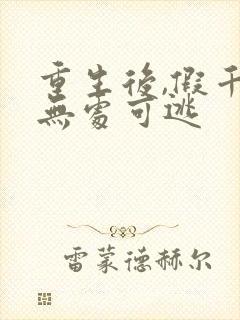 重生後,假千
無處可逃
雷蒙德赫尔